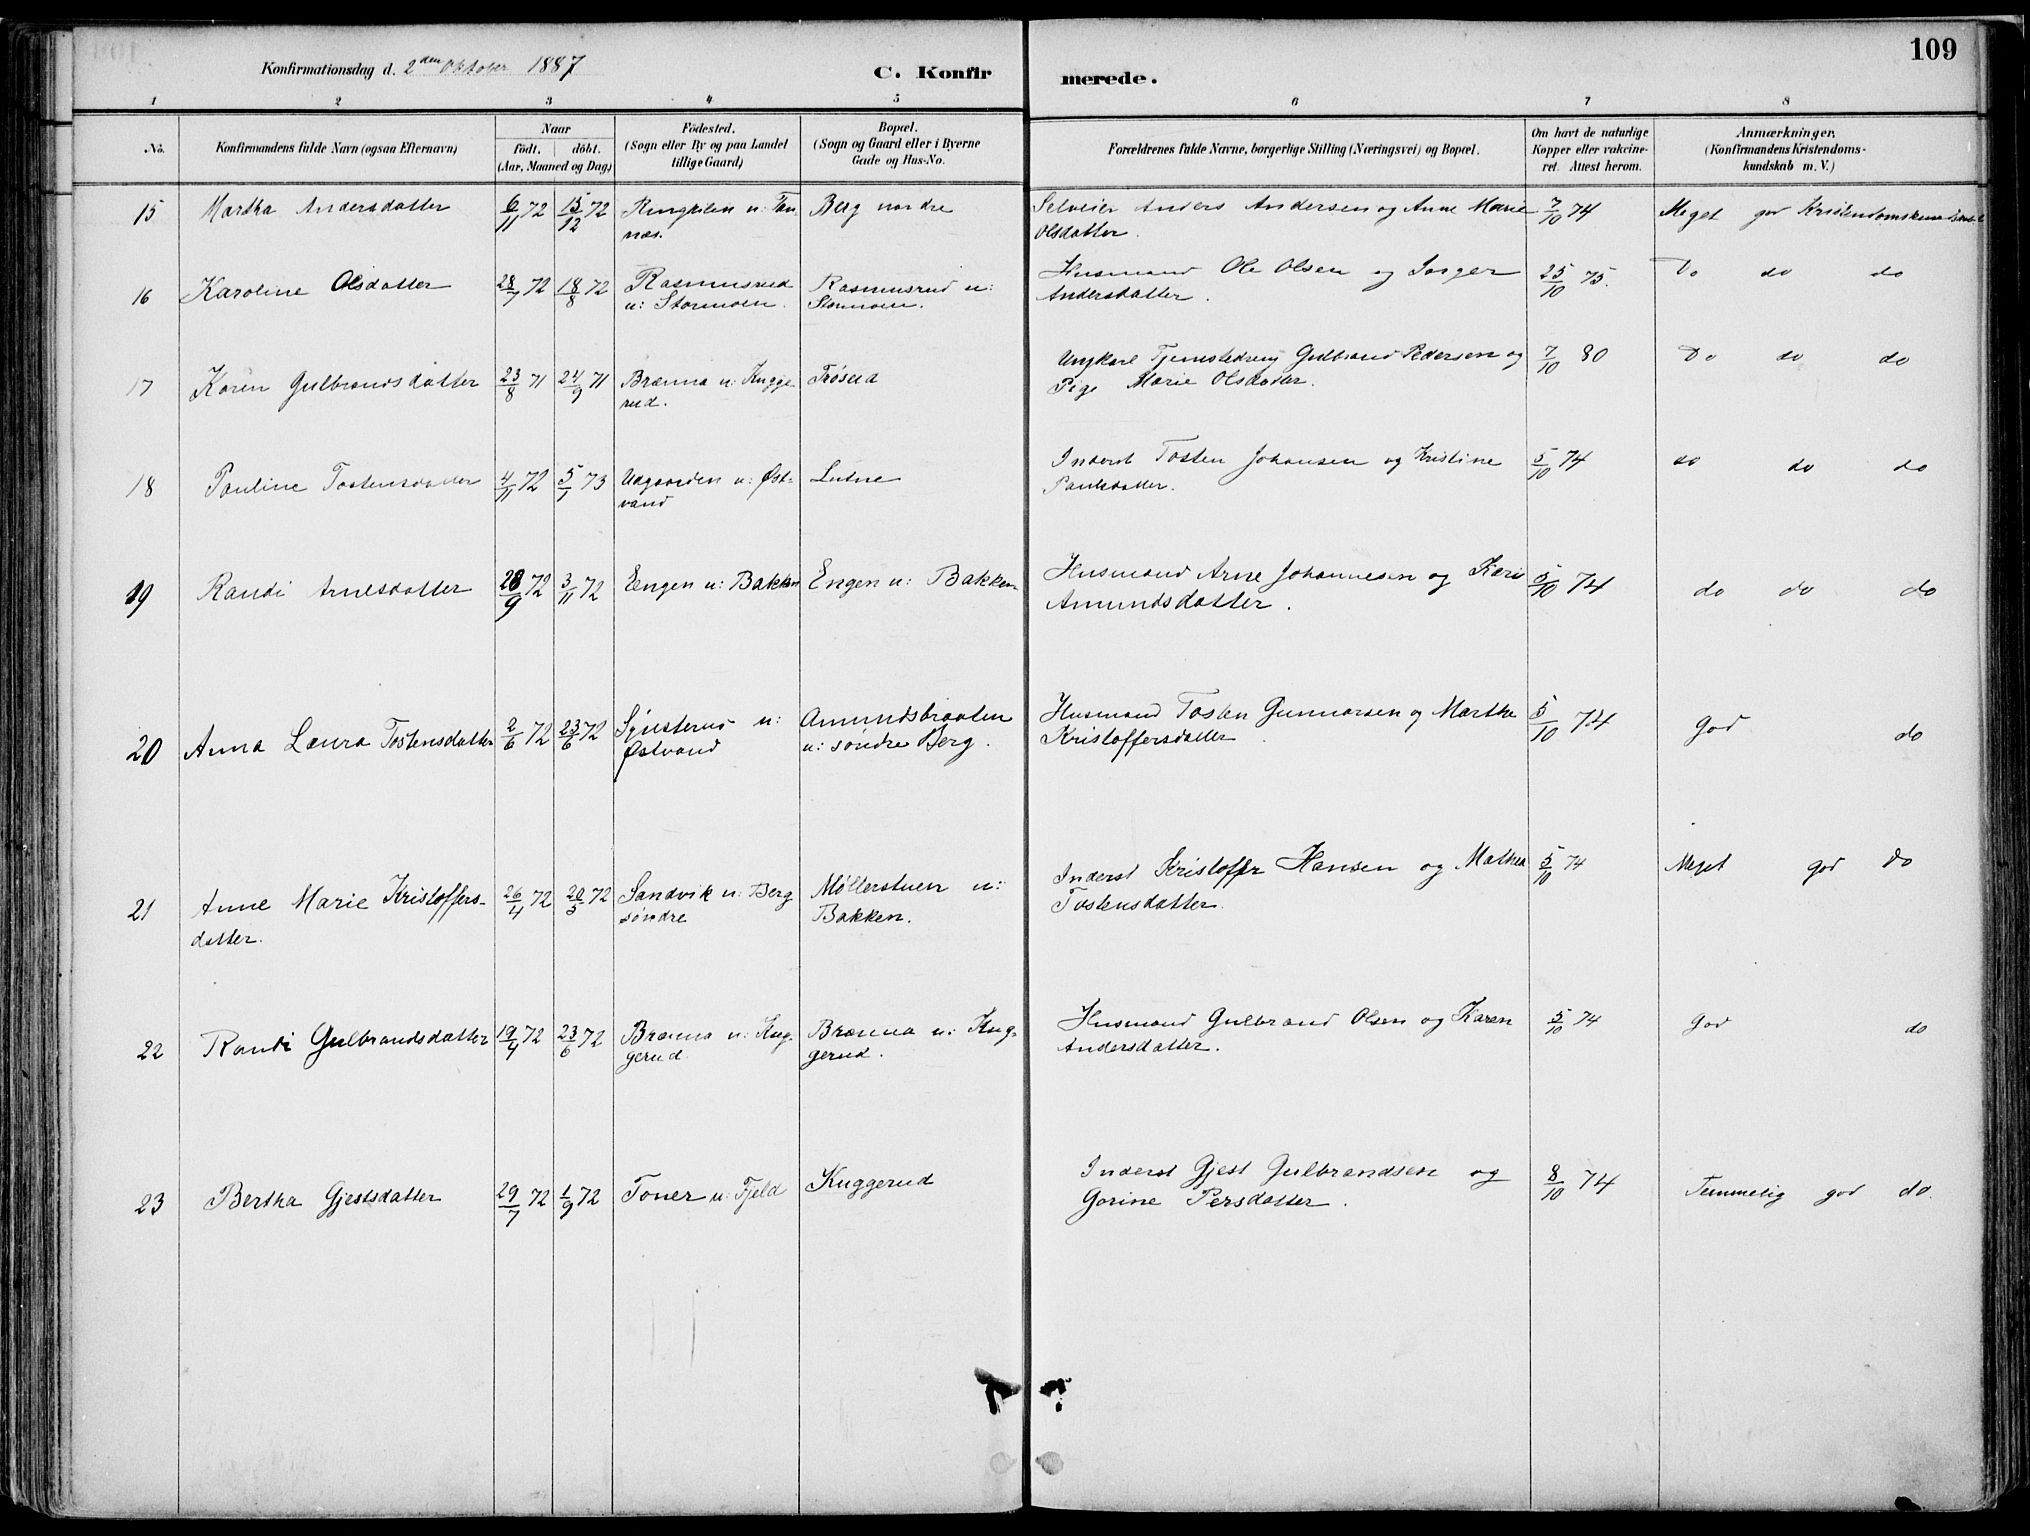 109
Konfirmationsdag d. 2den Oktober 1887
C. Konfirmerede.
1 2 3 4 5 6 7 8
No. | Konfirmandens fulde Navn (ogsaa Efternavn) | Naar födt. döbt. (Aar, Maaned og Dag) | Födested. (Sogn eller By og paa Landet tillige Gaard) | Bopæl. (Sogn og Gaard eller i Byerne Gade og Hus-No. | Forældrenes fulde Navne, borgerlige Stilling (Næringsvei) og Bopæl. | Om havt de naturlige Kopper eller vakcineret. Attest herom. | Anmærkninger. (Konfirmandens Kristendomskundskab m. V.)
15 Martha Andersdatter 6/11 72 15/12 72 Ringkilen u: Tan Berg nordre Selveier Anders Andersen og Anne Marie 7/10 74 Meget god Kristendomskundskab
næs. Olsdatter.
16 Karoline Olsdatter 28/7 72 18/8 72 Rasmusrud Rasmusrud u: Husmand Ole Olsen og Inger 25/10 75. Do do do
u: Stormoen. Stormoen. Andersdatter.
17 Karen Gulbrandsdatter 23/8 71 24/9 71 Brænna u: Kugge- Trøseid Ungkarl Tjenestedreng Gulbrand Pedersen og 7/10 80 Do do do
rud. Pige Marie Olsdatter.
18 Pauline Tostensdatter 4/11 72 5/1 73 Udgaarden u: Øst- Lutne Inderst Tosten Johansen og Kristine 5/10 74 do do do
vand Paulsdatter.
19 Randi Arnesdatter 28/9 72 3/11 72 Engen u: Bakken Engen u: Bakken Husmand Arne Johannesen og Kari 5/10 74 do do do
Amundsdatter.
20 Anna Laura Tostensdatter 2/6 72 23/6 72 Synsterud u: Amundsbraaten Husmand Tosten Gunnarsen og Martha 5/10 74 God do
Østvand u: söndre Berg. Kristoffersdatter
21 Anne Marie Kristoffers- 26/4 72 20/5 72 Sandvik u: Berg Møllerstuen u: Inderst Kristoffer Hansen og Mathea 5/10 74 Meget god do
datter. söndre Bakken. Tostensdatter.
22 Randi Gulbrandsdatter 19/4 72 23/6 72 Brænna u: Kug- Brænna u: Kug- Husmand Gulbrand Olsen og Karen 5/10 74 God do
gerud gerud. Andersdatter.
23 Bertha Gjestsdatter 29/7 72 1/9 72 Toner u: Fjeld Kuggerud Inderst Gjest Gulbrandsen og 8/10 74 Temmelig god do.
Gorine Persdatter.